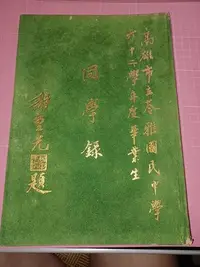 高雄市立苓雅國民中學
六十二學年度畢業生
同學錄
題